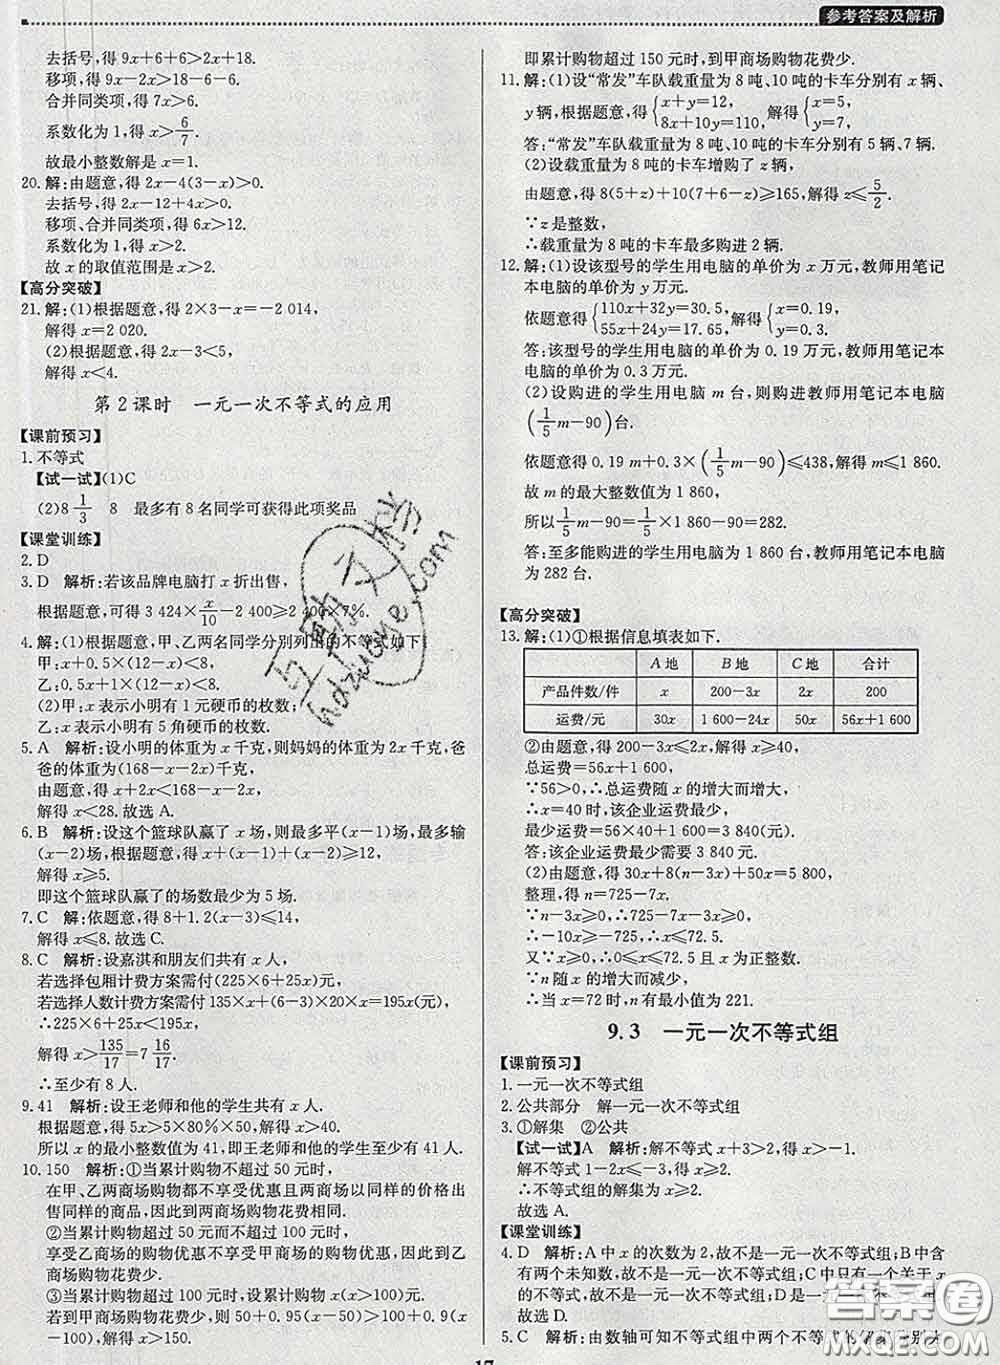 参考答案及解析
去括号,得 9x+6+6>2x+18.
移项,得 9x-2x>18-6-6.
合并同类项,得 7x>6.
系数化为 1,得 x>6/7.
故最小整数解是 x=1.
20. 解:由题意,得 2x-4(3-x)>0.
去括号,得 2x-12+4x>0.
移项、合并同类项,得 6x>12.
系数化为 1,得 x>2.
故 x 的取值范围是 x>2.
【高分突破】
21. 解:(1)根据题意,得 2×3-x=-2 014,
解得 x=2 020.
(2)根据题意,得 2x-3<5,
解得 x<4.
第 2 课时 一元一次不等式的应用
【课前预习】
1. 不等式
【试一试】(1)C
(2)8 1/3 8 最多有 8 名同学可获得此项奖品
【课堂训练】
2. D
3. D 解析:若该品牌电脑打 x 折出售,
根据题意,可得 3 424×x/10-2 400≥2 400×7%.
4. 解:(1)根据题意,甲、乙两名同学分别列出的不等式如下:
甲:x+0.5×(12-x)<8,
乙:0.5x+1×(12-x)<8.
(2)甲:x 表示小明有 1 元硬币的枚数.
乙:x 表示小明有 5 角硬币的枚数.
5. A 解析:设小明的体重为 x 千克,则妈妈的体重为 2x 千克,爸
爸的体重为(168-x-2x)千克,
由题意,得 x+2x<168-x-2x,
解得 x<28.故选 A.
6. B 解析:设这个篮球队赢了 x 场,则最多平(x-1)场,最多输
(x-2)场,根据题意,得 x+(x-1)+(x-2)≥12,
解得 x≥5.
即这个篮球队赢了的场数最少为 5 场.
7. C 解析:依题意,得 8+1.2(x-3)≤14,
解得 x≤8.故选 C.
8. C 解析:设嘉淇和朋友们共有 x 人,
若选择包厢计费方案需付(225×6+25x)元,
若选择人数计费方案需付 135×x+(6-3)×20×x=195x(元),
∴225×6+25x<195x,
解得 x>135/17=7 16/17.
∴至少有 8 人.
9. 41 解析:设王老师和他的学生共有 x 人.
根据题意,得 5x>5×80%×50,解得 x>40.
所以 x 的最小整数值为 41,即王老师和他的学生至少有 41 人.
10. 150 解析:①当累计购物不超过 50 元时,
在甲、乙两商场购物都不享受优惠且两商场以同样的价格出
售同样的商品,因此到两商场购物花费相同.
②当累计购物超过 50 元而不超过 100 元时,
享受乙商场的购物优惠不享受甲商场的购物优惠,因此到乙
商场购物花费少.
③当累计购物超过 100 元时,设累计购物 x(x>100)元.
若到甲商场购物花费少,则 50+0.95(x-50)>100+0.9(x
-100),解得 x>150.
即累计购物超过 150 元时,到甲商场购物花费少.
11. 解:(1)设“常发”车队载重量为 8 吨、10 吨的卡车分别有 x 辆、
y 辆,根据题意,得 {x+y=12, 8x+10y=110, 解得 {x=5, y=7,
答:“常发”车队载重量为 8 吨、10 吨的卡车分别有 5 辆、7 辆.
(2)设载重量为 8 吨的卡车增购了 z 辆,
由题意,得 8(5+z)+10(7+6-z)≥165,解得 z≤5/2.
∵z 是整数,
∴载重量为 8 吨的卡车最多购进 2 辆.
12. 解:(1)设该型号的学生用电脑的单价为 x 万元,教师用笔记
本电脑的单价为 y 万元.
依题意得 {110x+32y=30.5, 55x+24y=17.65, 解得 {x=0.19, y=0.3.
答:该型号的学生用电脑的单价为 0.19 万元,教师用笔记本
电脑的单价为 0.3 万元.
(2)设购进的学生用电脑 m 台,则购进教师用笔记本电脑
(1/5m-90)台.
依题意得 0.19 m+0.3×(1/5m-90)≤438,解得 m≤1 860.
故 m 的最大整数值为 1 860,
所以1/5m-90=1/5×1 860-90=282.
答:至多能购进的学生用电脑为 1 860 台,教师用笔记本电脑
为 282 台.
【高分突破】
13. 解:(1)①根据信息填表如下.
A 地 B 地 C 地 合计
产品件数/件 x 200-3x 2x 200
运费/元 30x 1 600-24x 50x 56x+1 600
②由题意,得 200-3x≤2x,解得 x≥40,
总运费=56x+1 600,
∵56>0,∴总运费随 x 的增大而增大,
∴x=40 时,该企业运费最少,
最少运费=56×40+1 600=3 840(元).
答:该企业运费最少需要 3 840 元.
(2)由题意,得 30x+8(n-3x)+50x=5 800,
整理,得 n=725-7x.
∵n-3x≥0,∴725-7x-3x≥0,
∴-10x≥-725,∴x≤72.5.
又∵x≥0,∴0≤x≤72.5 且 x 为正整数.
∵n 随 x 的增大而减少,
∴当 x=72 时,n 有最小值为 221.
9.3 一元一次不等式组
【课前预习】
1. 一元一次不等式组
2. 公共部分 解一元一次不等式组
3. ①解集 ②公共
【试一试】A 解析:解不等式 x+3>2,得 x>-1,
解不等式 1-2x≤-3,得 x≥2,
∴不等式组的解集为 x≥2.
故选 A.
【课堂训练】
4. D 解析:A 中 x 的次数为 2,故不是一元一次不等式组;B 中含
有两个未知数,故不是一元一次不等式组;C 中只有一个关于 x
的不等式,故不是一元一次不等式组;D 是一元一次不等式组,
故选 D.
5. C 解析:由数轴可知不等式组中两个不等式的解集分别为
17
互助文学
hdzuone.com
答案圈
MXQE.COM